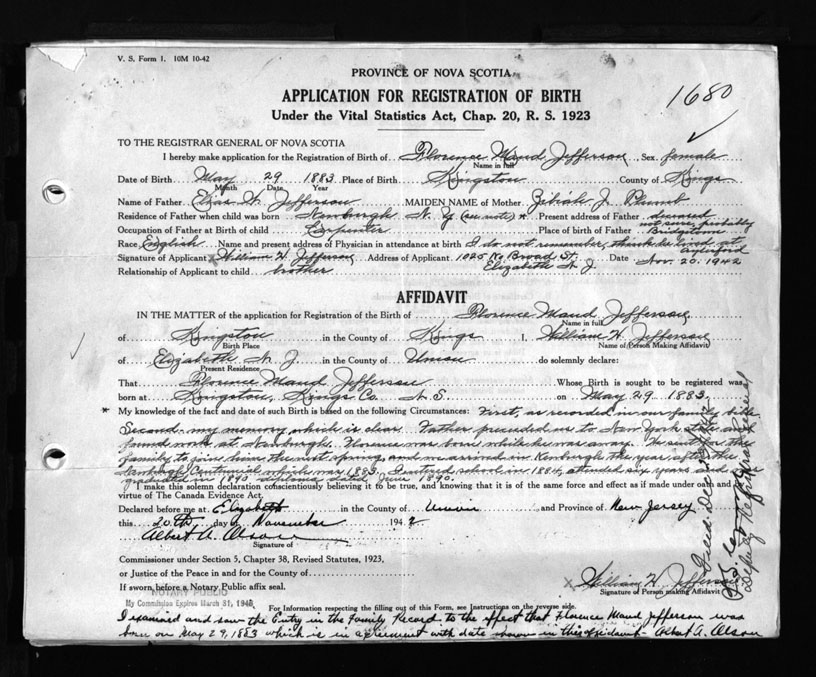 V. S. Form 1. 10M 10-42
PROVINCE OF NOVA SCOTIA
1680
APPLICATION FOR REGISTRATION OF BIRTH
Under the Vital Statistics Act, Chap. 20, R. S. 1923
TO THE REGISTRAR GENERAL OF NOVA SCOTIA
I hereby make application for the Registration of Birth of Florence Maud Jefferson Sex female
Name in full
Date of Birth May 29 1883 Place of Birth Kingston County of Kings
Month Date Year
Name of Father W. Jefferson MAIDEN NAME of Mother J. Plumb
Residence of Father when child was born Newburgh N. Y. (see note) Present address of Father deceased
Occupation of Father at Birth of child Carpenter Place of birth of Father not sure, probably Bridgetown
Race English Name and present address of Physician in attendance at birth I do not remember, think he lived at
Signature of Applicant William H. Jefferson Address of Applicant 1025 No. Broad St. Elizabeth N. J. Date Nov. 20. 1942
Relationship of Applicant to child brother
AFFIDAVIT
IN THE MATTER of the application for Registration of the Birth of Florence Maud Jefferson
Name in full
of Kingston in the County of Kings I, William H. Jefferson
Birth Place Name of Person Making Affidavit
of Elizabeth N. J. in the County of Union do solemnly declare:
Present Residence
That Florence Maud Jefferson Whose Birth is sought to be registered was
born at Kingston, Kings Co. N. S. on May 29 1883.
* My knowledge of the fact and date of such Birth is based on the following Circumstances: First, as recorded in our family bible
Second, my memory which is clear. Father preceded us to New York state and
found work at Newburgh. Florence was born while he was away. He sent for the
family to join him the next spring and we arrived in Newburgh the year after the
Newburgh Centennial which was 1883. I entered school in 1884, attended six years and
graduated in 1890 diploma dated June 1890.
I make this solemn declaration conscientiously believing it to be true, and knowing that it is of the same force and effect as if made under oath and by
virtue of The Canada Evidence Act.
Declared before me at Elizabeth in the County of Union and Province of New Jersey
this 20th day of November 1942
Albert A. Olson
Signature of
Commissioner under Section 5, Chapter 38, Revised Statutes, 1923,
or Justice of the Peace in and for the County of
If sworn before a Notary Public affix seal.
William H. Jefferson
Signature of Person making Affidavit
NOTARY PUBLIC
My Commission Expires March 31, 194
For Information respecting the filling out of this Form, see Instructions on the reverse side.
I examined and saw the Entry in the Family Record to the effect that Florence Maud Jefferson was
born on May 29, 1883 which is in agreement with date shown in this affidavit - Albert A. Olson
Deputy Registrar General